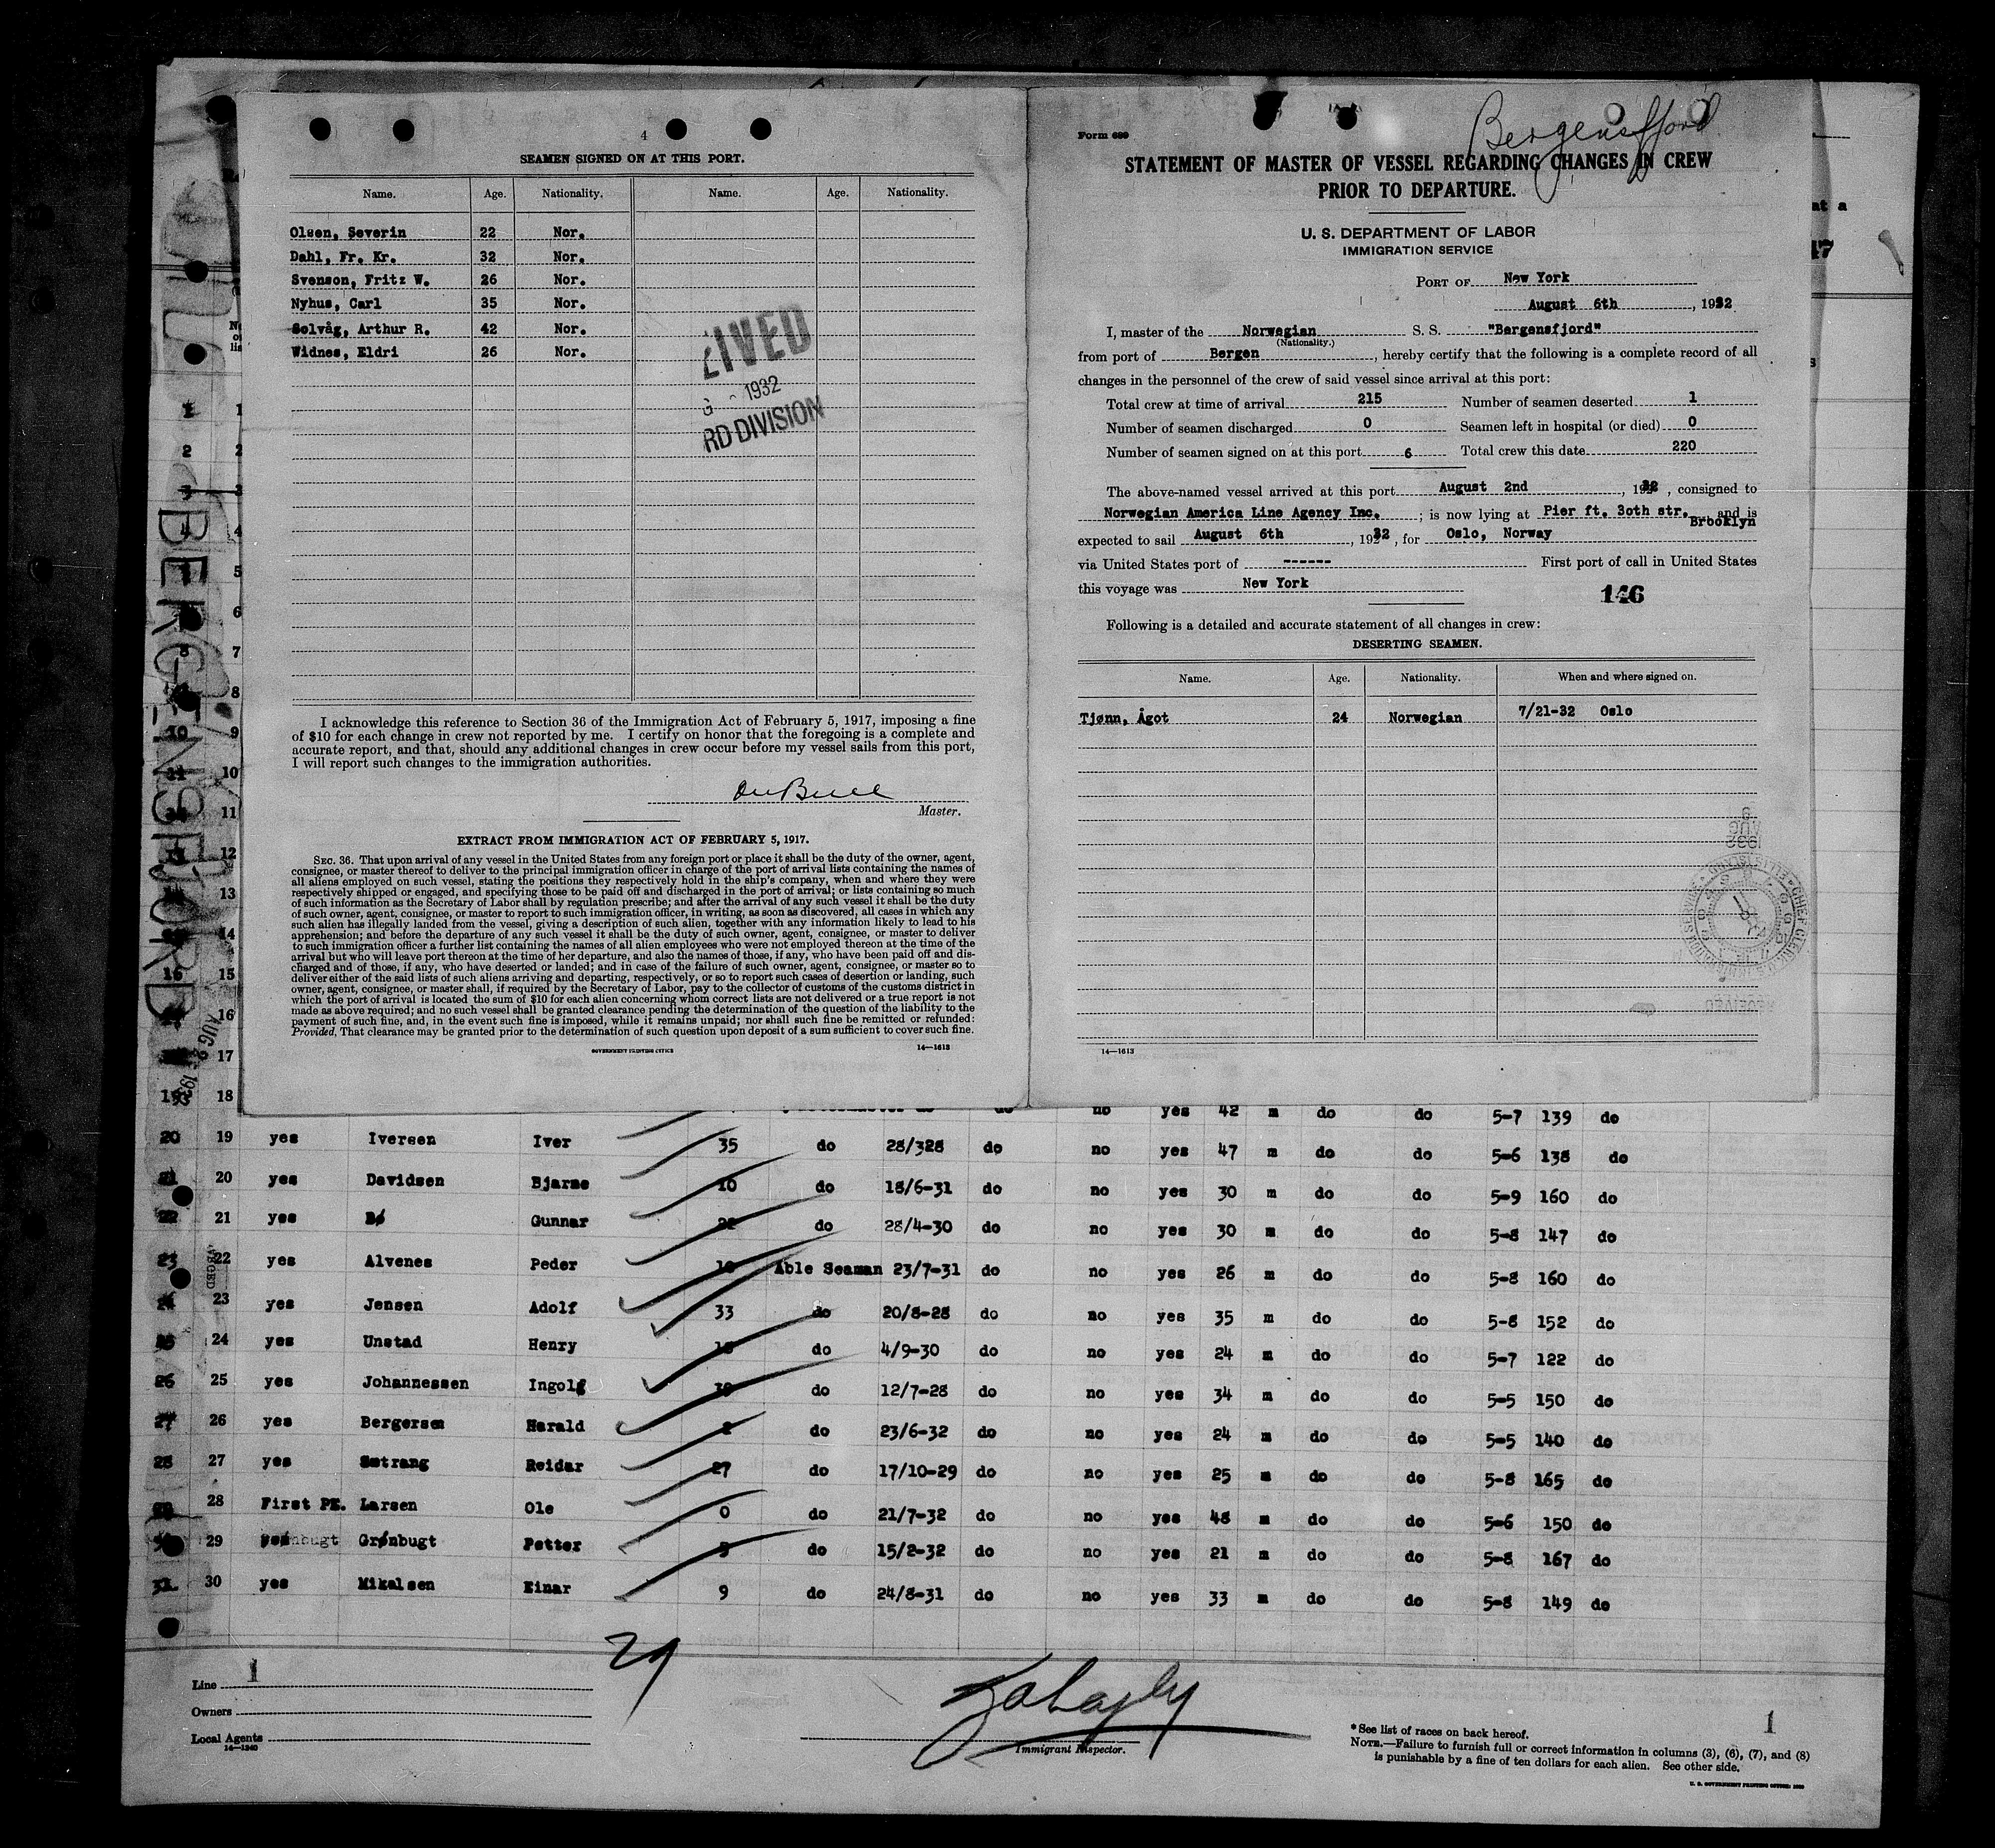 4
SEAMEN SIGNED ON AT THIS PORT.
Name. Age. Nationality. Name. Age. Nationality.
Olsen, Severin 22 Nor.
Dahl, Fr. Kr. 32 Nor.
Svenson, Fritz W. 26 Nor.
Nyhus, Carl 35 Nor.
Solvåg, Arthur R. 42 Nor.
Widnes, Eldri 26 Nor.
IVED
1932
RD DIVISION
I acknowledge this reference to Section 36 of the Immigration Act of February 5, 1917, imposing a fine
of $10 for each change in crew not reported by me. I certify on honor that the foregoing is a complete and
accurate report, and that, should any additional changes in crew occur before my vessel sails from this port,
I will report such changes to the immigration authorities.
Master.
EXTRACT FROM IMMIGRATION ACT OF FEBRUARY 5, 1917.
SEC. 36. That upon arrival of any vessel in the United States from any foreign port or place it shall be the duty of the owner, agent,
consignee, or master thereof to deliver to the principal immigration officer in charge of the port of arrival lists containing the names of
all aliens employed on such vessel, stating the positions they respectively hold in the ship's company, when and where they were
respectively shipped or engaged, and specifying those to be paid off and discharged in the port of arrival; or lists containing so much
of such information as the Secretary of Labor shall by regulation prescribe; and after the arrival of any such vessel it shall be the duty
of such owner, agent, consignee, or master to report to such immigration officer, in writing, as soon as discovered, all cases in which any
such alien has illegally landed from the vessel, giving a description of such alien, together with any information likely to lead to his
apprehension; and before the departure of any such vessel it shall be the duty of such owner, agent, consignee, or master to deliver
to such immigration officer a further list containing the names of all alien employees who were not employed thereon at the time of the
arrival but who will leave port thereon at the time of her departure, and also the names of those, if any, who have been paid off and dis-
charged and of those, if any, who have deserted or landed; and in case of the failure of such owner, agent, consignee, or master so to
deliver either of the said lists of such aliens arriving and departing, respectively, or so to report such cases of desertion or landing, such
owner, agent, consignee, or master shall, if required by the Secretary of Labor, pay to the collector of customs of the customs district in
which the port of arrival is located the sum of $10 for each alien concerning whom correct lists are not delivered or a true report is not
made as above required; and no such vessel shall be granted clearance pending the determination of the question of the liability to the
payment of such fine, and, in the event such fine is imposed, while it remains unpaid; nor shall such fine be remitted or refunded:
Provided, That clearance may be granted prior to the determination of such question upon deposit of a sum sufficient to cover such fine.
GOVERNMENT PRINTING OFFICE 14—1613
Bergensfjord
Form 689
STATEMENT OF MASTER OF VESSEL REGARDING CHANGES IN CREW
PRIOR TO DEPARTURE.
U. S. DEPARTMENT OF LABOR
IMMIGRATION SERVICE
PORT OF New York
August 6th, 1932
I, master of the Norwegian S. S. "Bergensfjord"
(Nationality.)
from port of Bergen, hereby certify that the following is a complete record of all
changes in the personnel of the crew of said vessel since arrival at this port:
Total crew at time of arrival 215 Number of seamen deserted 1
Number of seamen discharged 0 Seamen left in hospital (or died) 0
Number of seamen signed on at this port 6 Total crew this date 220
The above-named vessel arrived at this port August 2nd, 1932, consigned to
Norwegian America Line Agency Inc. ; is now lying at Pier ft. 30th str. Brooklyn and is
expected to sail August 6th, 1932, for Oslo, Norway
via United States port of ------ First port of call in United States
this voyage was New York
146
Following is a detailed and accurate statement of all changes in crew:
DESERTING SEAMEN.
Name. Age. Nationality. When and where signed on.
Tjønn, Ågot 24 Norwegian 7/21-32 Oslo
14—1613
BERGENSFJORD
AUG 2 1932
18 do no yes 42 m do do 5-7 139 do
20 19 yes Iversen Iver 35 do 28/328 do no yes 47 m do do 5-6 138 do
21 20 yes Davidsen Bjarne 10 do 18/6-31 do no yes 30 m do do 5-9 160 do
22 21 yes Bø Gunnar 22 do 28/4-30 do no yes 30 m do do 5-8 147 do
23 22 yes Alvenes Peder 10 Able Seaman 23/7-31 do no yes 26 m do do 5-8 160 do
24 23 yes Jensen Adolf 33 do 20/8-28 do no yes 35 m do do 5-8 152 do
25 24 yes Unstad Henry do 4/9-30 do no yes 24 m do do 5-7 122 do
26 25 yes Johannessen Ingolf 30 do 12/7-28 do no yes 34 m do do 5-5 150 do
27 26 yes Bergersen Harald 2 do 23/6-32 do no yes 24 m do do 5-5 140 do
28 27 yes Sætrang Reidar 27 do 17/10-29 do no yes 25 m do do 5-8 165 do
28 First PE. Larsen Ole 0 do 21/7-32 do no yes 48 m do do 5-6 150 do
29 Grønbugt Petter 5 do 15/2-32 do no yes 21 m do do 5-8 167 do
31 30 yes Mikalsen Einar 9 do 24/8-31 do no yes 33 m do do 5-8 149 do
29
Line 1
Owners
Local Agents
14—1240
Immigrant Inspector.
1
* See list of races on back hereof.
NOTE.—Failure to furnish full or correct information in columns (3), (6), (7), and (8)
is punishable by a fine of ten dollars for each alien. See other side.